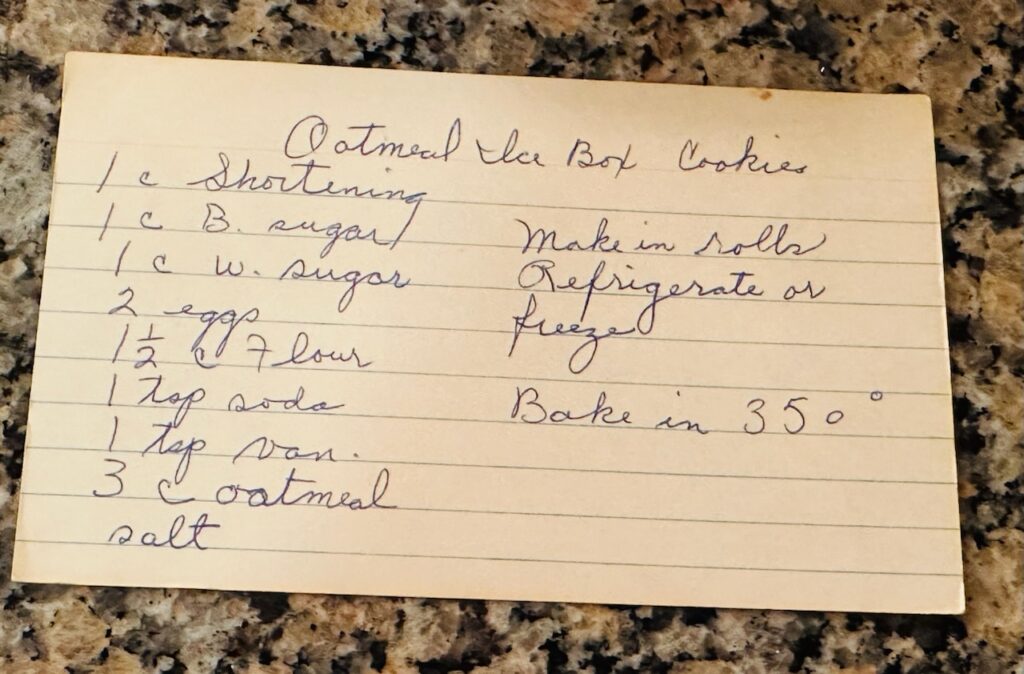 Oatmeal Ice Box Cookies
1 c Shortening
1 c B. sugar
1 c w. sugar
2 eggs
1 1/2 c Flour
1 tsp soda
1 tsp van.
3 c oatmeal
salt
Make in rolls
Refrigerate or
freeze
Bake in 350°